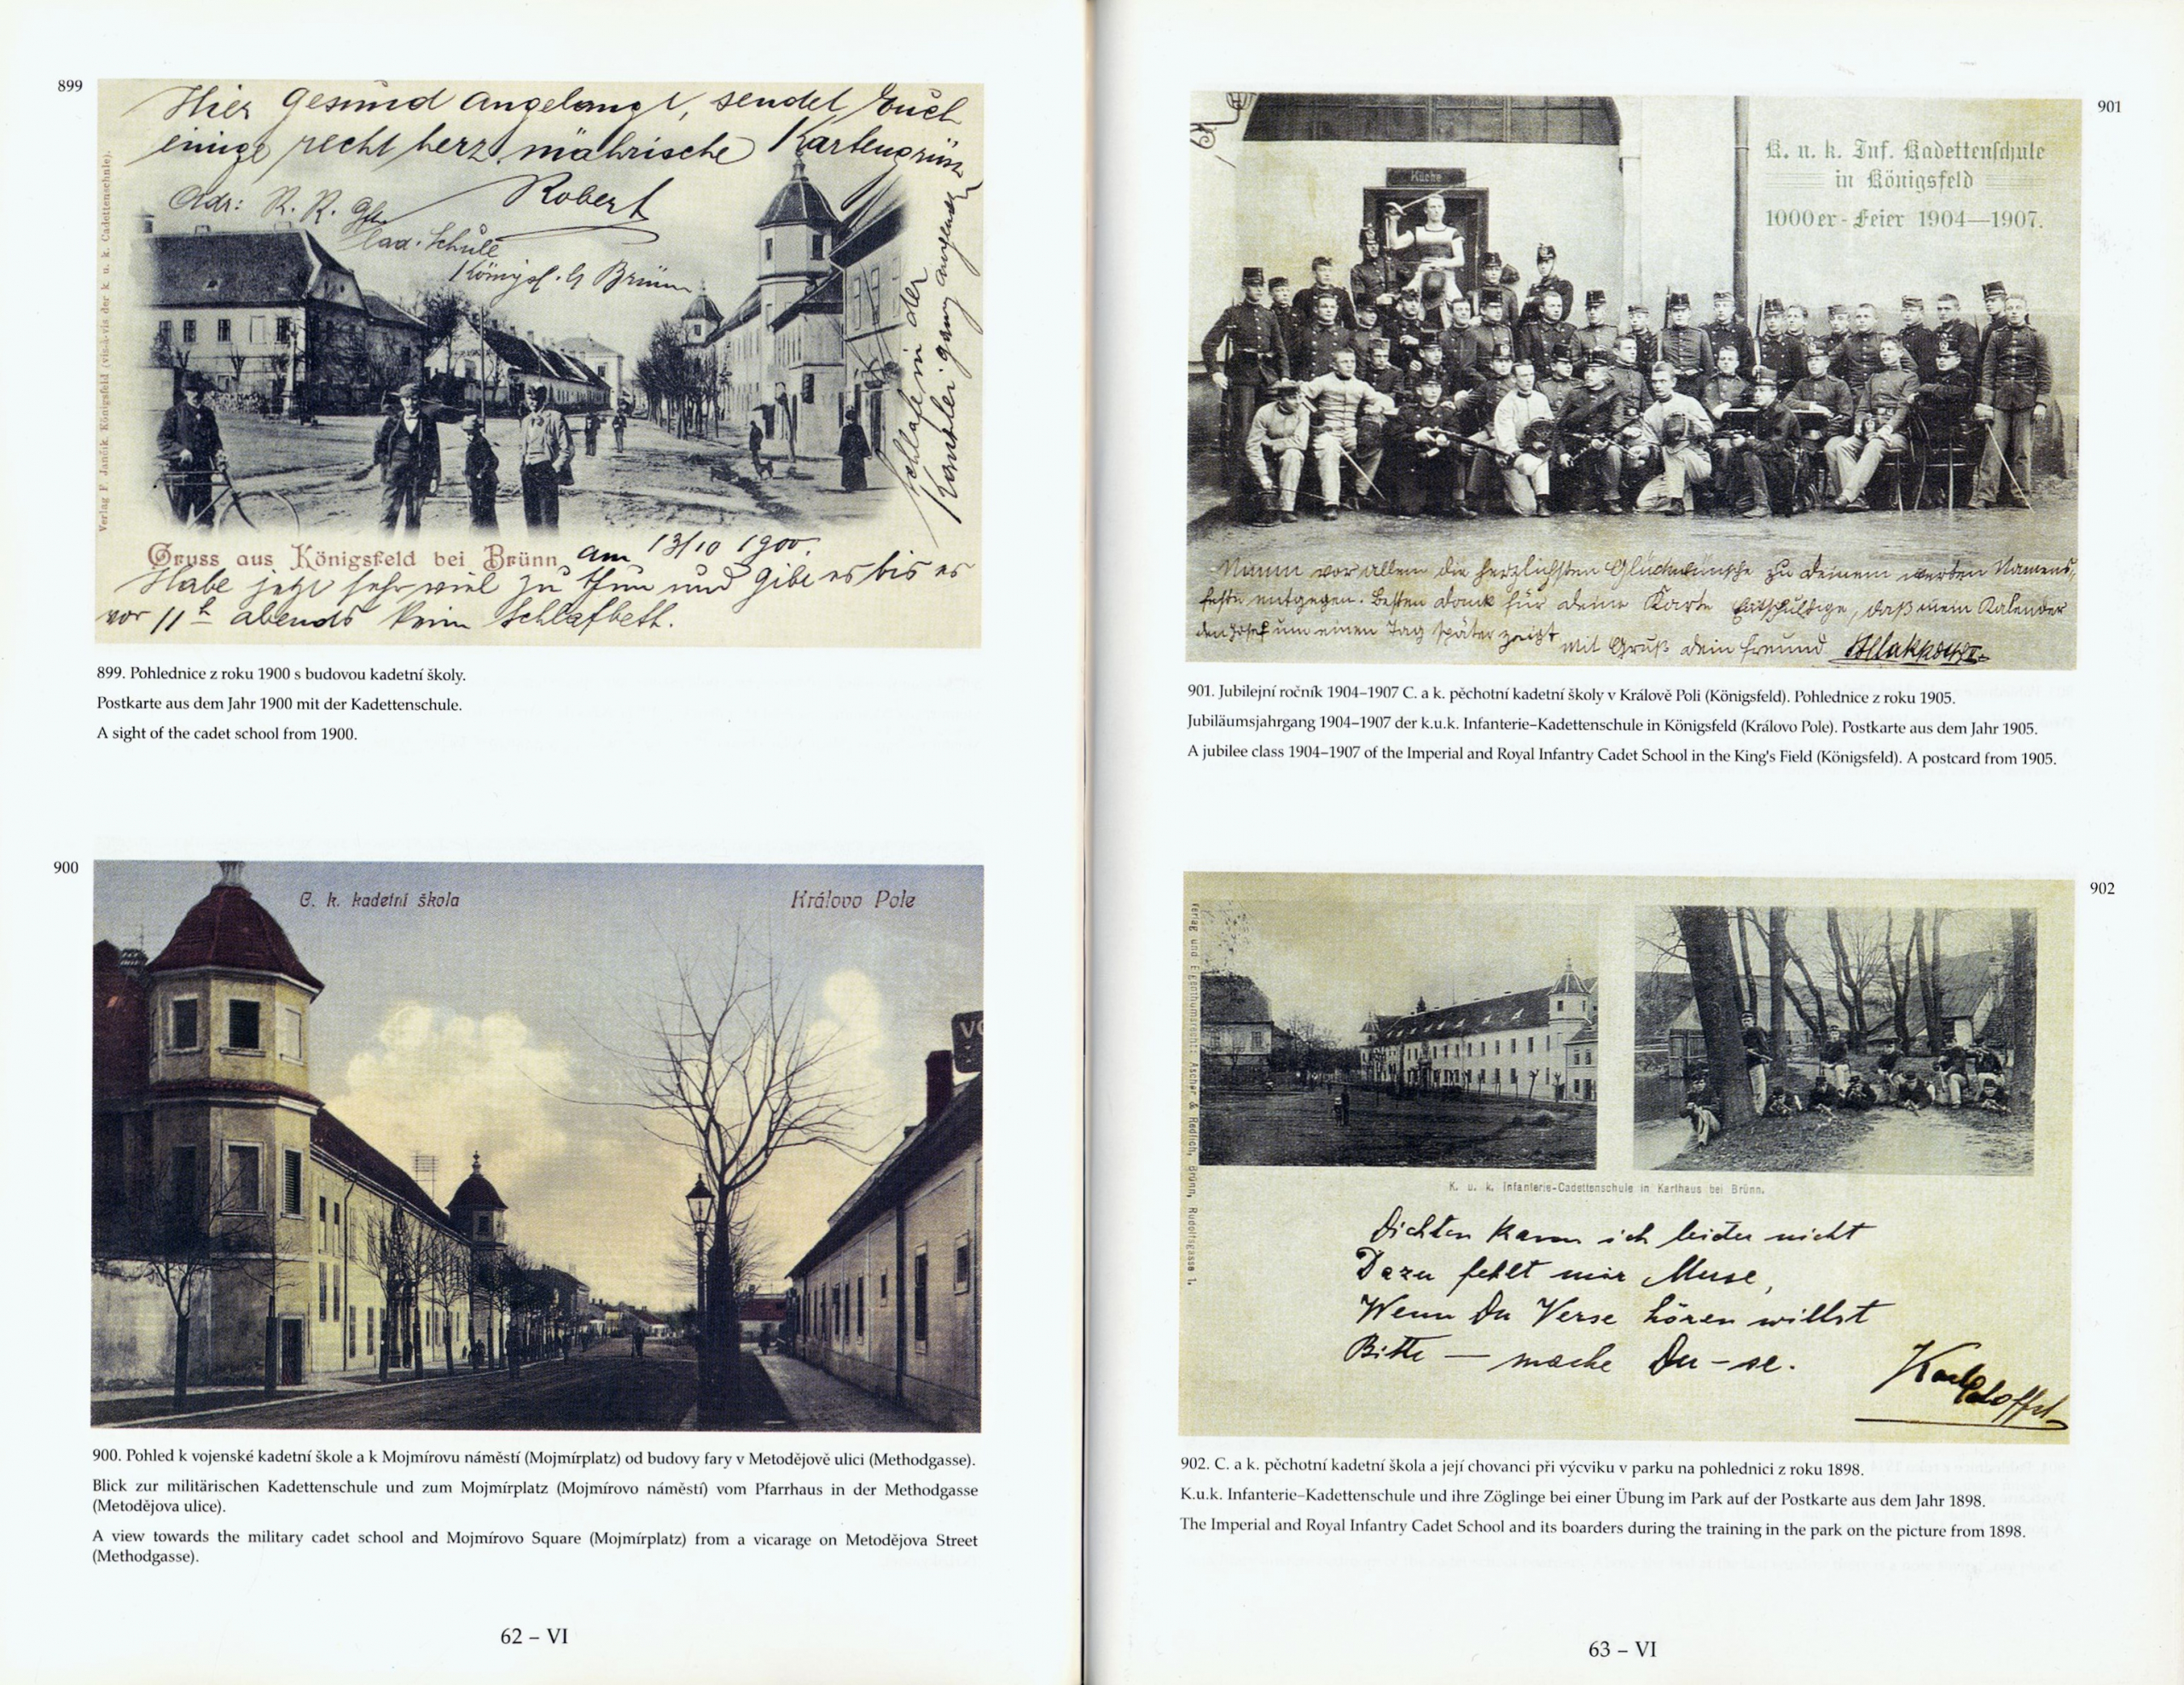 899
Hier gesund angelangt, sendet Euch
einige recht herz. mährische Kartengrüße
Robert
Adr: K. K.
Cad. Schule
Königsf. b Brünn
Schlafe in der
Kanzlei ganz angezogen
Verlag F. Jančík, Königsfeld (vis-à-vis der k. u. k. Cadettenschule).
Gruss aus Königsfeld bei Brünn am 13/10 1900.
Habe jetzt sehr viel zu thun und gibt es bis es
vor 11h abends kein Schlafbett.
899. Pohlednice z roku 1900 s budovou kadetní školy.
Postkarte aus dem Jahr 1900 mit der Kadettenschule.
A sight of the cadet school from 1900.
900
C. k. kadetní škola
Královo Pole
900. Pohled k vojenské kadetní škole a k Mojmírovu náměstí (Mojmírplatz) od budovy fary v Metodějově ulici (Methodgasse).
Blick zur militärischen Kadettenschule und zum Mojmírplatz (Mojmírovo náměstí) vom Pfarrhaus in der Methodgasse
(Metodějova ulice).
A view towards the military cadet school and Mojmírovo Square (Mojmírplatz) from a vicarage on Metodějova Street
(Methodgasse).
62 – VI
901
Küche
K. u. k. Inf. Kadettenschule
in Königsfeld
1000er - Feier 1904—1907.
Nimm vor allem die herzlichsten Glückwünsche zu deinem werten Namens-
feste entgegen. Besten Dank für deine Karte Entschuldige, daß mein Kalender
den Josef um einen Tag später zeigt mit Gruß dein Freund
901. Jubilejní ročník 1904–1907 C. a k. pěchotní kadetní školy v Králově Poli (Königsfeld). Pohlednice z roku 1905.
Jubiläumsjahrgang 1904–1907 der k.u.k. Infanterie–Kadettenschule in Königsfeld (Královo Pole). Postkarte aus dem Jahr 1905.
A jubilee class 1904–1907 of the Imperial and Royal Infantry Cadet School in the King's Field (Königsfeld). A postcard from 1905.
902
Verlag und Eigenthumsrecht: Ascher & Redlich, Brünn, Rudolfsgasse 1.
K. u. k. Infanterie-Cadettenschule in Karthaus bei Brünn.
Dichten kann ich leider nicht
Dazu fehlt mir Muse,
Wenn Du Verse hören willst
Bitte — mache Du - se.
Karl
902. C. a k. pěchotní kadetní škola a její chovanci při výcviku v parku na pohlednici z roku 1898.
K.u.k. Infanterie–Kadettenschule und ihre Zöglinge bei einer Übung im Park auf der Postkarte aus dem Jahr 1898.
The Imperial and Royal Infantry Cadet School and its boarders during the training in the park on the picture from 1898.
63 – VI